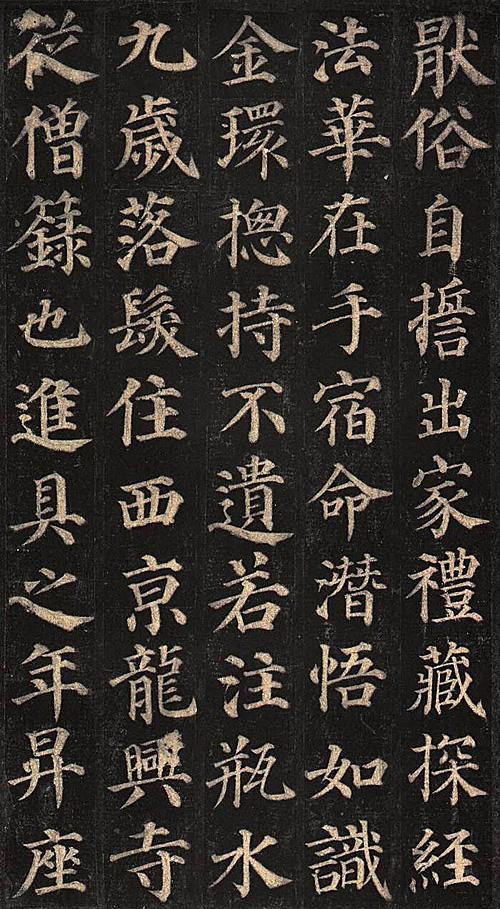 猒俗自擔出家禮藏探經
法華在手宿命潛悟如識
金環揔持不遺若注瓶水
九歲落髮住西京龍興寺
從僧籙也進具之年昇座